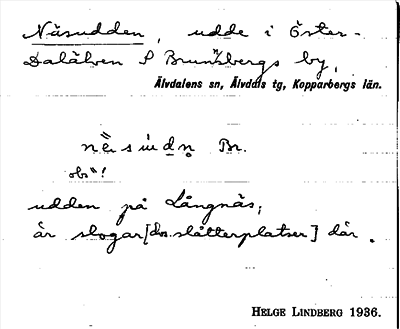 Näsudden, udde i Öster-
Dalälven S Brunnsbergs by,
Älvdalens sn, Älvdals tg, Kopparbergs län.
Br.
obs "!
udden på Långnäs,
är slogar [dvs. slåtterplatser] där.
HELGE LINDBERG 1936.